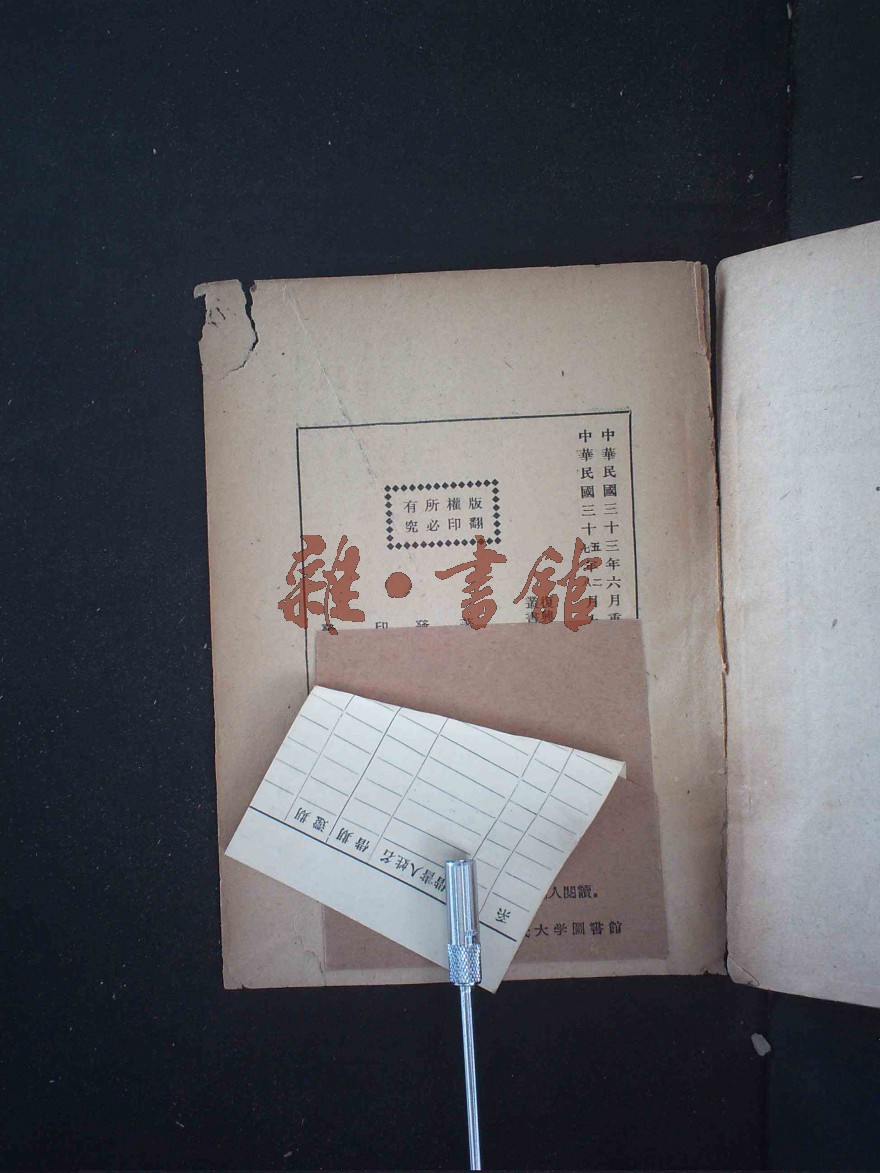 中華民國三十三年六月重
中華民國三十五年二月
九 八
復興
叢書
版權所有
翻印必究
發
印
雜·書館
還期
借期
借書人姓名
系
入閱讀。
大学圖書館